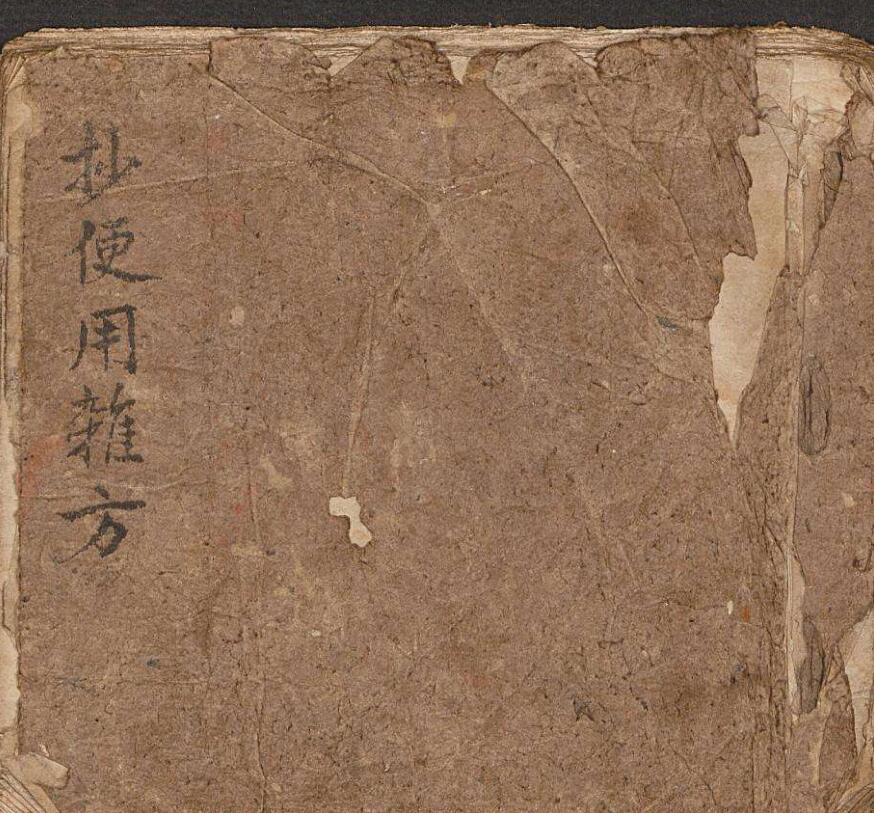 抄便用雜方